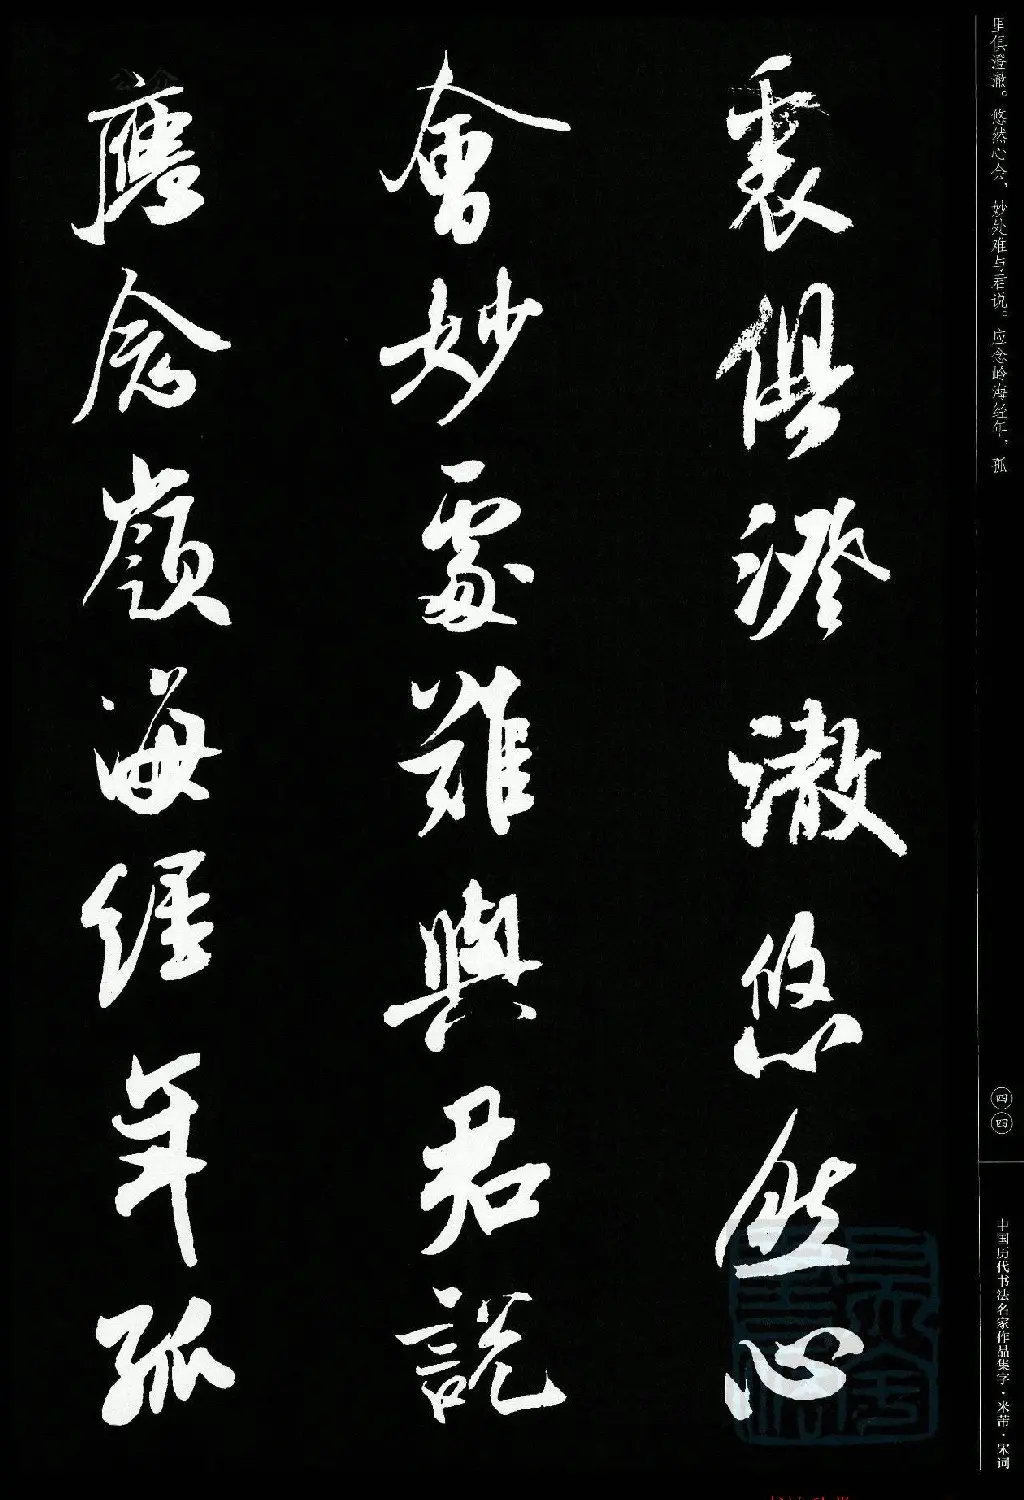 里俱澄澈。悠然心会，妙处难与君说。应念岭海经年，孤
四四
中国历代书法名家作品集字·米芾·宋词
裏俱澄澈悠然心
會妙處難與君説
應念嶺海經年孤